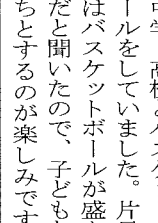 中学、高校
ールをしていました。片
はバスケットボールが盛
だと聞いたので、子ども
ちとするのが楽しみです